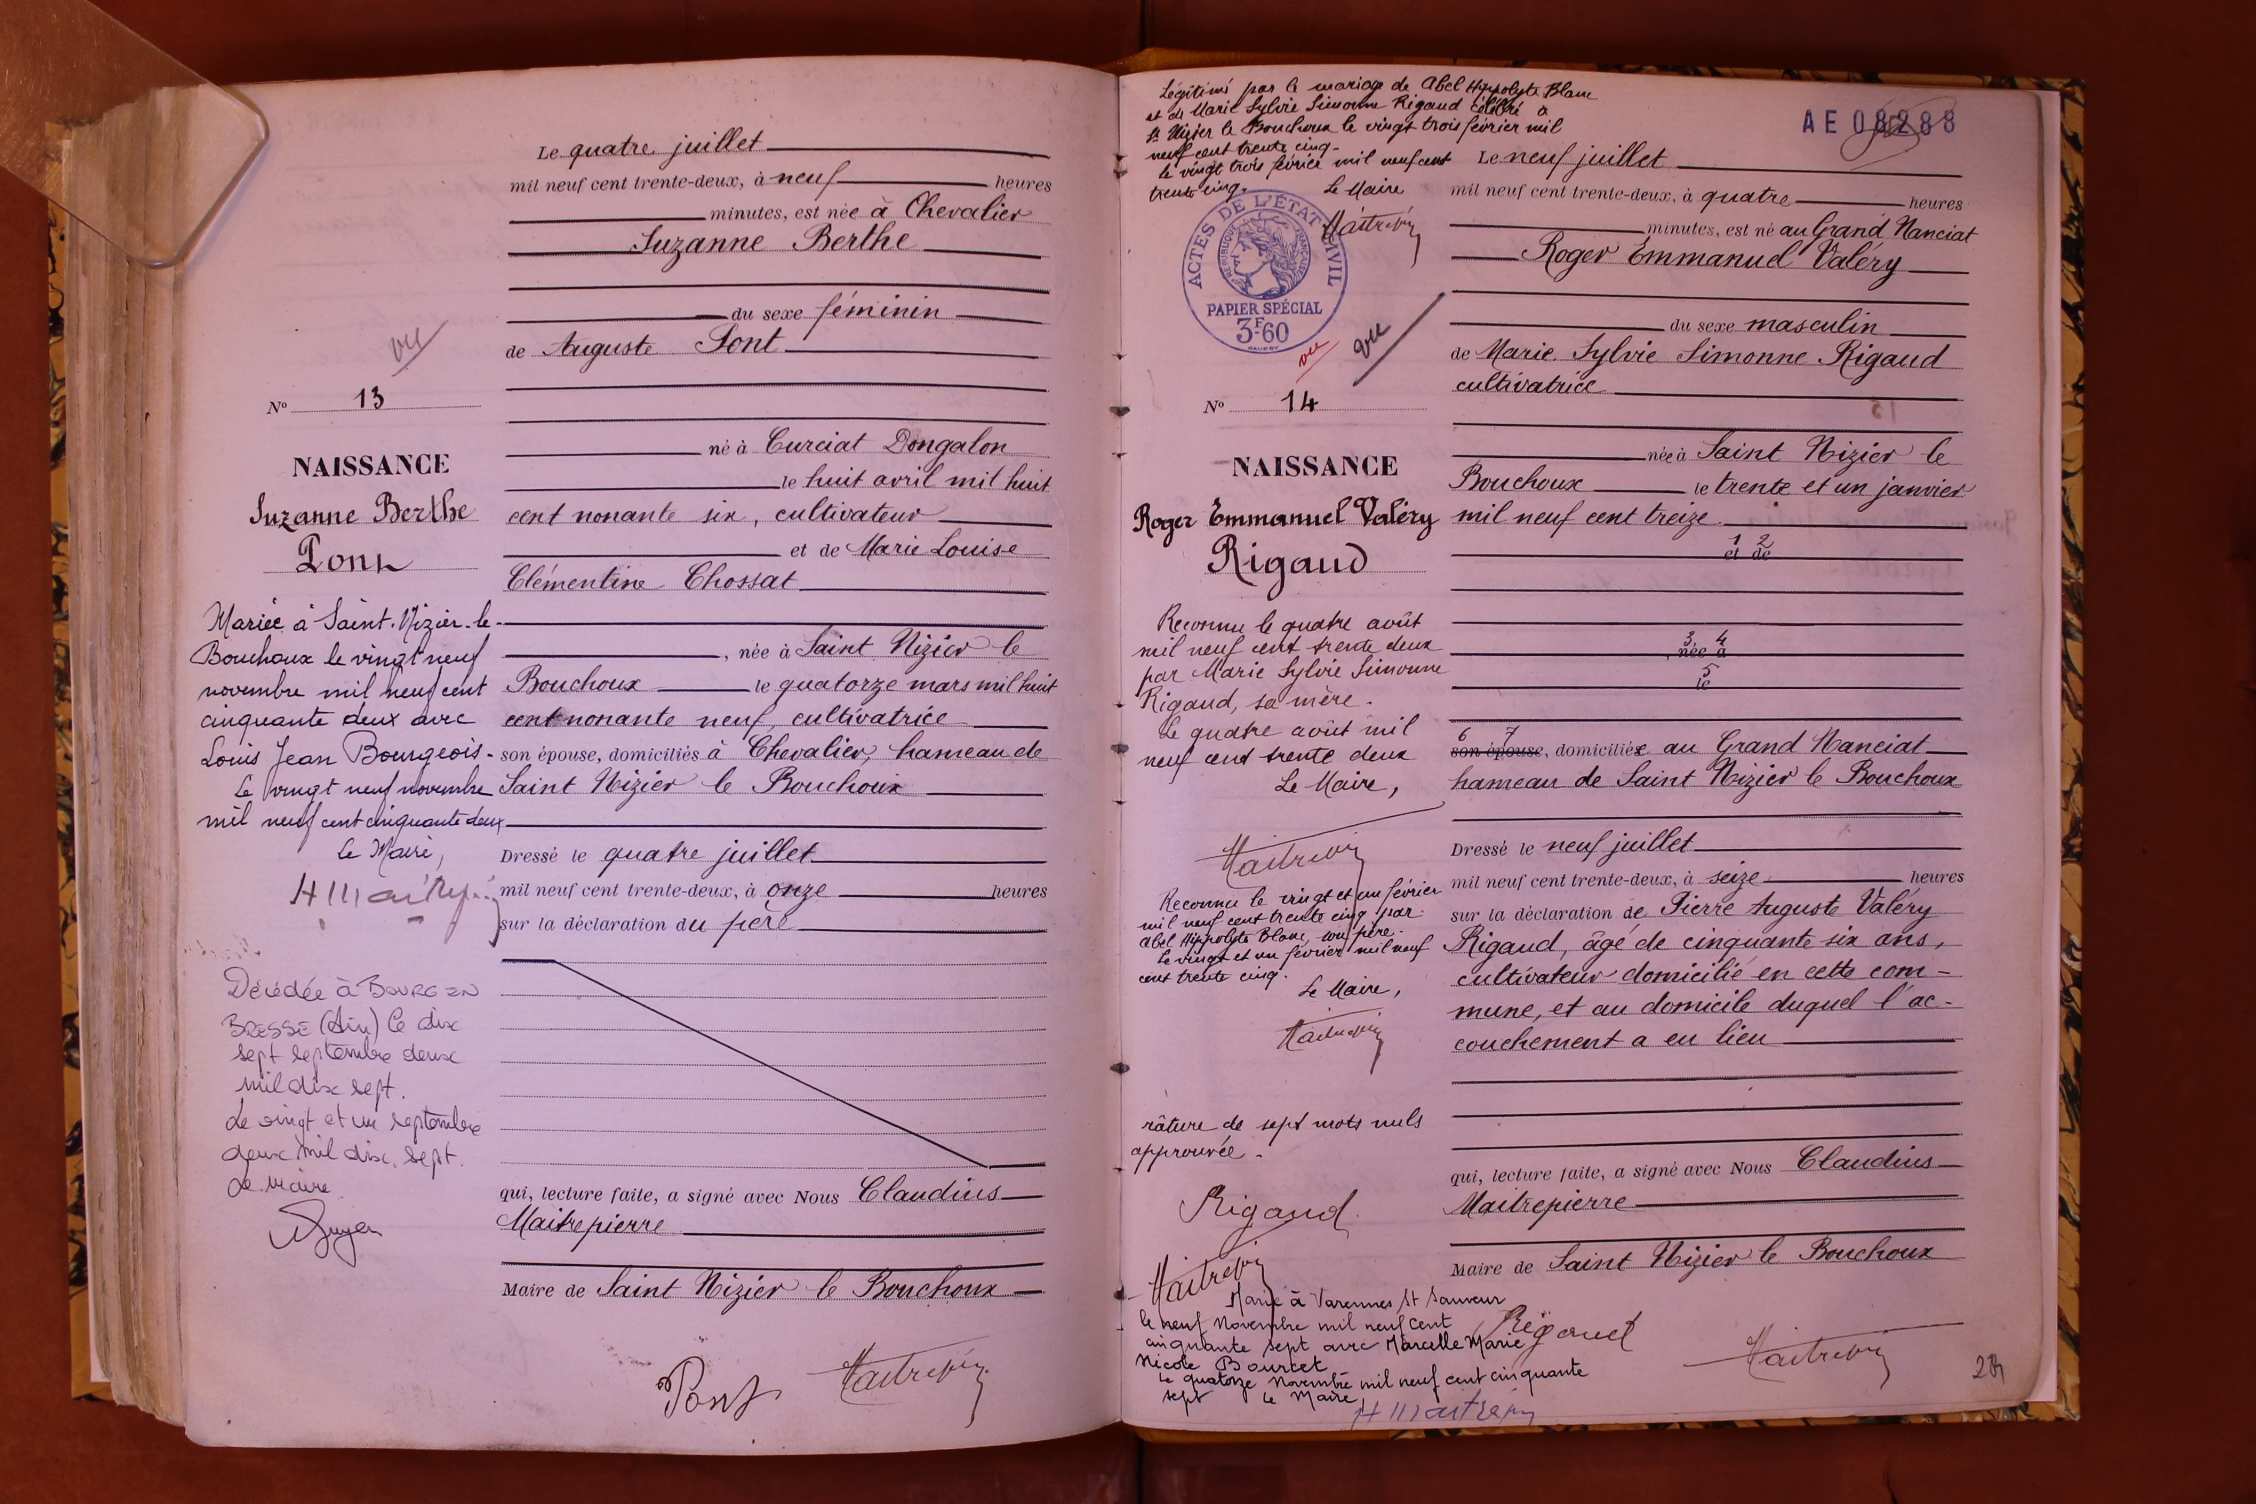 Le quatre juillet
mil neuf cent trente-deux, à neuf heures
minutes, est née à Chevalier
Suzanne Berthe
du sexe féminin
de Auguste Pont
vu
N° 13
né à Curciat Dongalon
le huit avril mil huit
cent nonante six, cultivateur
et de Marie Louise
Clémentine Chossat
, née à Saint Nizier le
Bouchoux le quatorze mars mil huit
cent nonante neuf, cultivatrice
son épouse, domiciliés à Chevalier, hameau de
Saint Nizier le Bouchoux
Dressé le quatre juillet
mil neuf cent trente-deux, à onze heures
sur la déclaration du père
qui, lecture faite, a signé avec Nous Claudius
Maitrepierre
Maire de Saint Nizier le Bouchoux
Pont
NAISSANCE
Suzanne Berthe
Pont
Mariée à Saint-Nizier-le-
Bouchoux le vingt neuf
novembre mil neuf cent
cinquante deux avec
Louis Jean Bourgeois-
Le vingt neuf novembre
mil neuf cent cinquante deux
Le Maire,
Décédée à BOURG EN
BRESSE (Ain) le dix
sept septembre deux
mil dix sept.
Le vingt et un septembre
deux mil dix sept.
Le Maire
Légitimé par le mariage de Abel Hippolyte Blanc
et de Marie Sylvie Simonne Rigaud célébré à
St Nizier le Bouchoux le vingt trois février mil
neuf cent trente cinq-
le vingt trois février mil neuf cent
trente cinq.
Le Maire
ACTES DE L'ÉTAT CIVIL
RÉPUBLIQUE FRANÇAISE
PAPIER SPÉCIAL
3F60
vu
vu
N° 14
NAISSANCE
Roger Emmanuel Valéry
Rigaud
Reconnu le quatre août
mil neuf cent trente deux
par Marie Sylvie Simonne
Rigaud, sa mère.
Le quatre août mil
neuf cent trente deux
Le Maire,
Reconnu le vingt et un février
mil neuf cent trente cinq par
Abel Hippolyte Blanc, son père.
Le vingt et un février mil neuf
cent trente cinq.
Le Maire,
râture de sept mots nuls
approuvée.
Rigaud
Marié à Varennes St Sauveur
le neuf Novembre mil neuf cent
cinquante sept avec Marcelle Marie
Nicole Bourcet
Le quatorze Novembre mil neuf cent cinquante
sept Le Maire,
AE 08288
Le neuf juillet
mil neuf cent trente-deux, à quatre heures
minutes, est né au Grand Nanciat
Roger Emmanuel Valéry
du sexe masculin
de Marie Sylvie Simonne Rigaud
cultivatrice
née à Saint Nizier le
Bouchoux le trente et un janvier
mil neuf cent treize
1 2
et de
3 4
, née à
5
le
6 7
son épouse, domiciliée au Grand Nanciat
hameau de Saint Nizier le Bouchoux
Dressé le neuf juillet
mil neuf cent trente-deux, à seize heures
sur la déclaration de Pierre Auguste Valéry
Rigaud, âgé de cinquante six ans,
cultivateur domicilié en cette com-
mune, et au domicile duquel l'ac-
couchement a eu lieu
qui, lecture faite, a signé avec Nous Claudius
Maitrepierre
Maire de Saint Nizier le Bouchoux
Rigaud